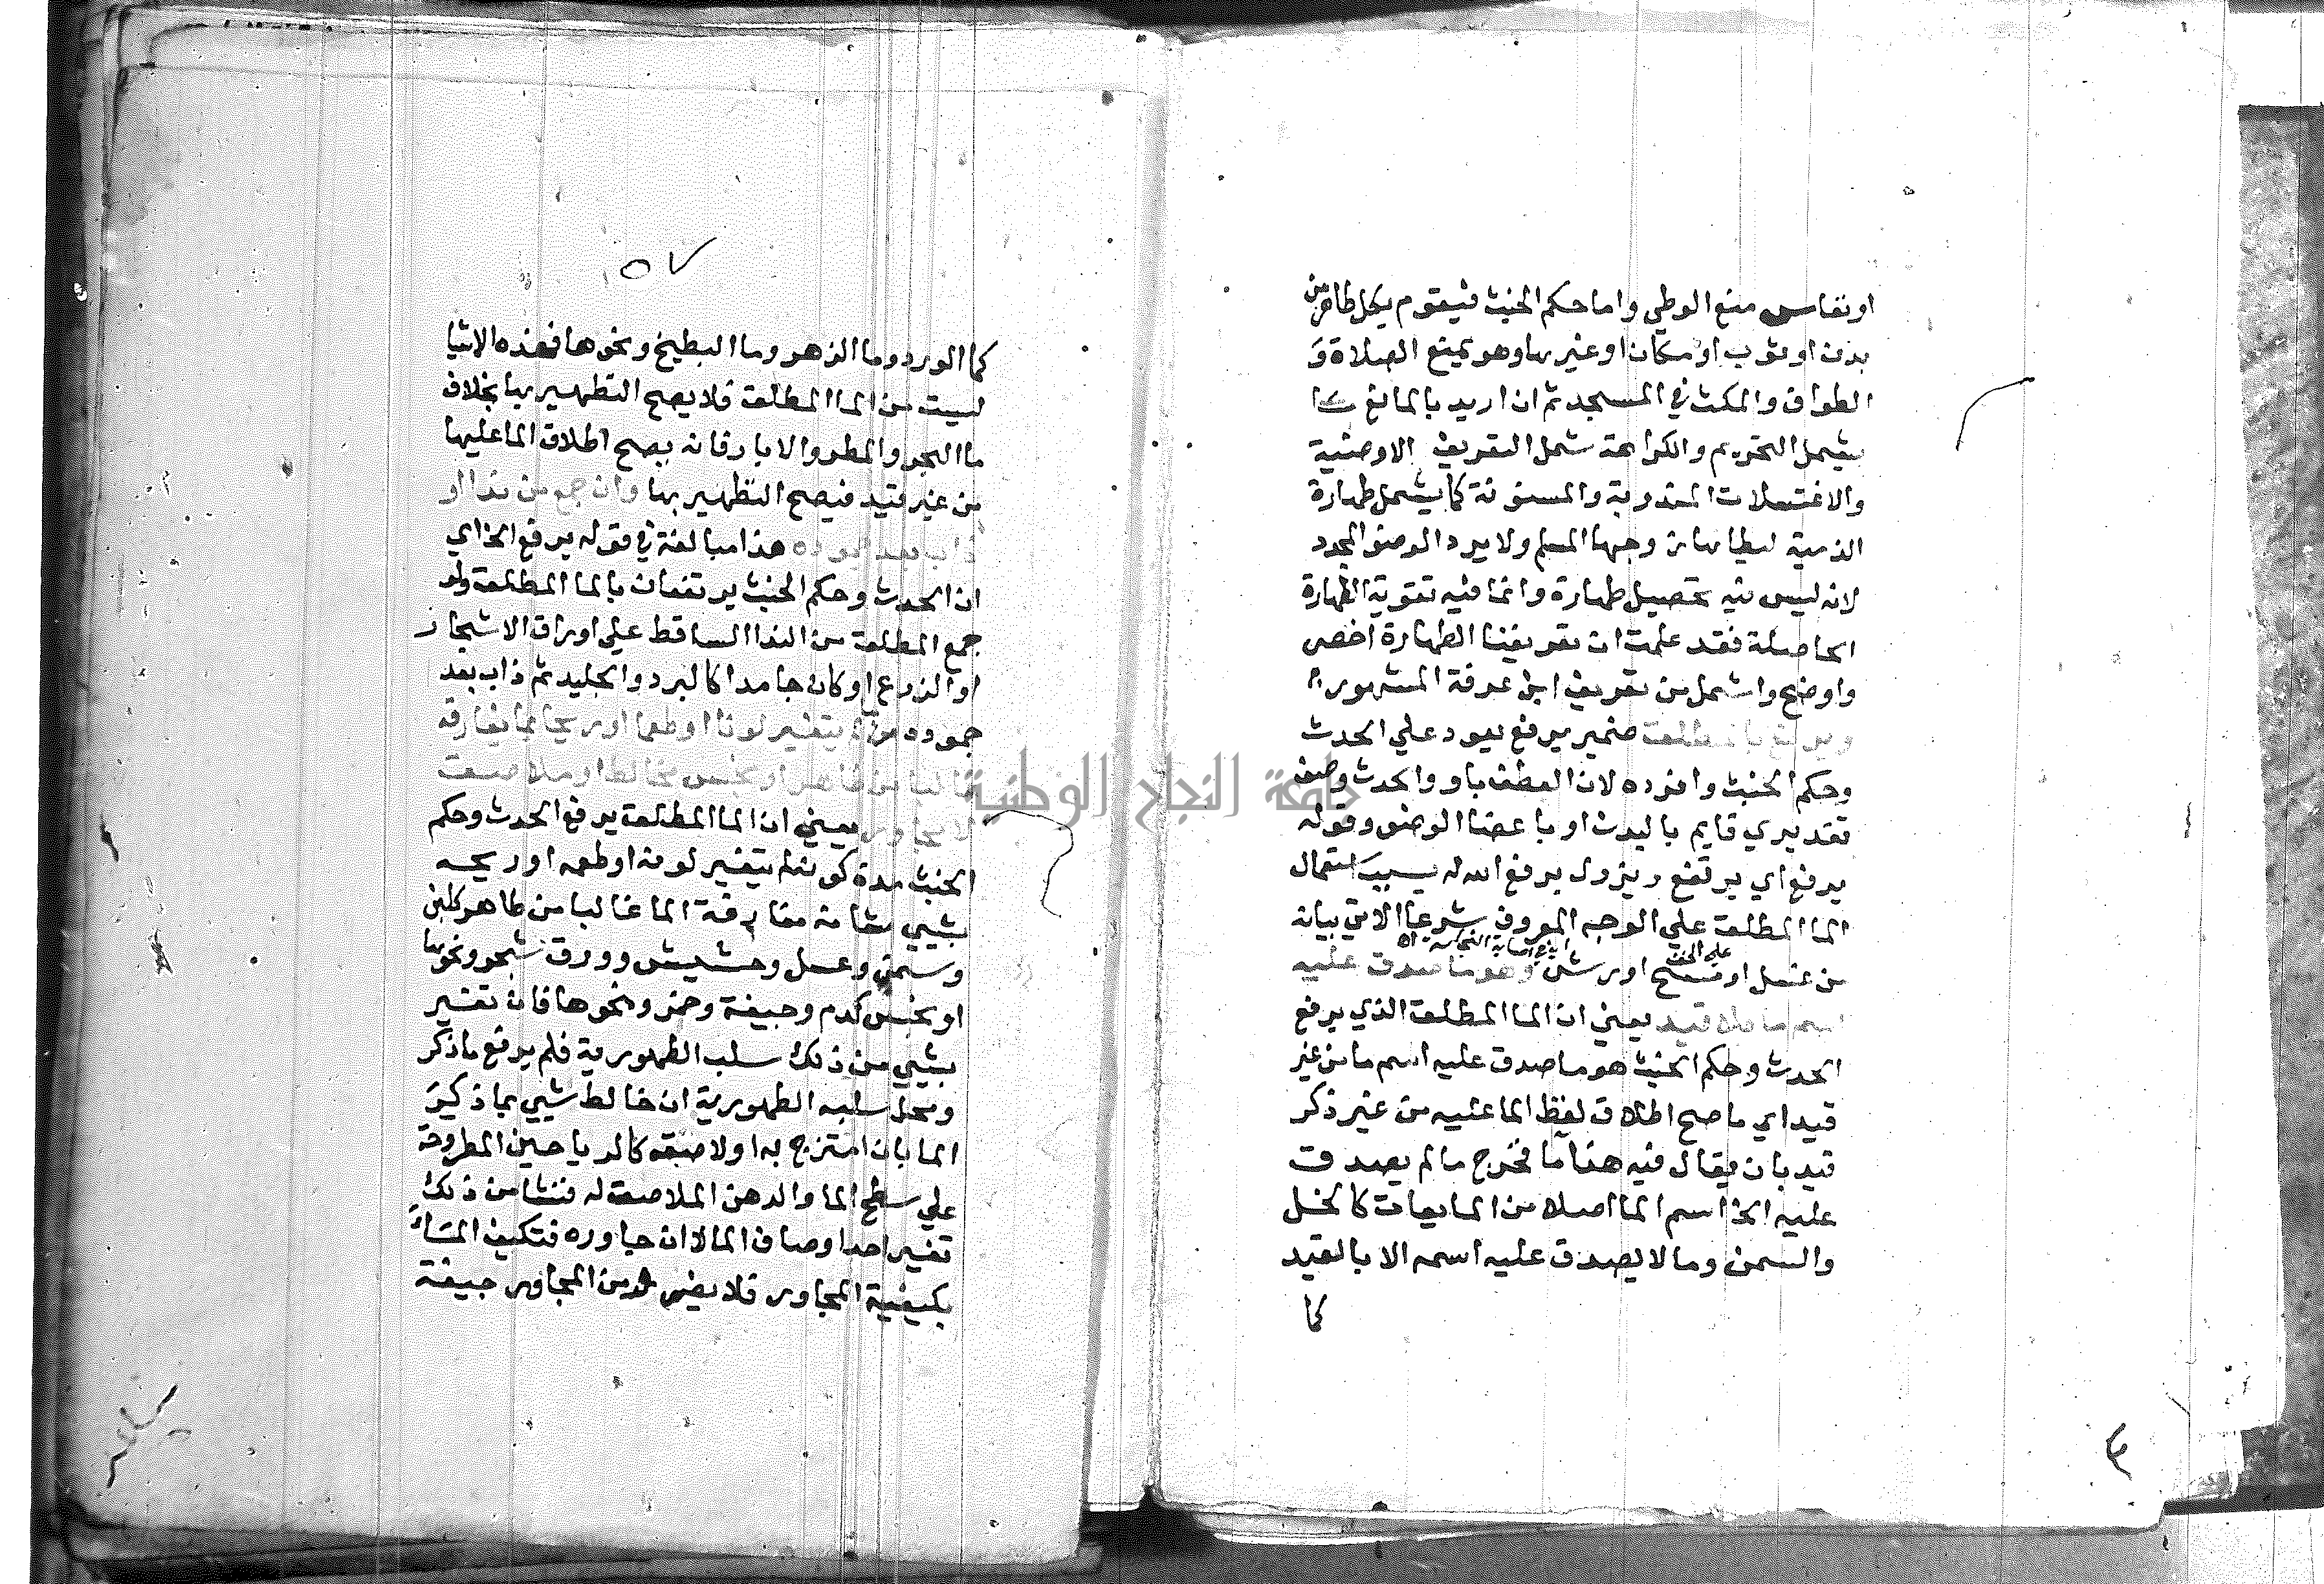 او نفاس منع الوطي واما حكم الخبث فيقوم بكل طاهر من
بدن او ثوب او مكان او غيرها وهو يمنع الصلاة و
الطواف والمكث في المسجد ثم ان اريد بالمانع
يشمل التحريم والكراهة شمل التعريف الاوضية
والاغتسلات المندوبة والمسنونة كما يشمل طهارة
الذمية ليطاها زوجها المسلم ولا يرد الوضو المجدد
لانه ليس فيه تحصيل طهارة وانما فيه تقوية الطهارة
الحاصلة فقد علمت ان تعريفنا الطهارة اخصر
واوضح واشمل من تعريف ابن عرفة المشهور
ويرفع بالمطلق ضمير يرفع يعود علي الحدث
وحكم الخبث وافرده لان العطف باو والحدث وصف
تقديري قايم بالبدن او باعضا الوضو وقوله
يرفع اي يرتفع ويزول برفع الله له بسبب استعمال
الما المطلق علي الوجه المعروف شرعا الاتي بيانه
من غسل او مسح اورش وهو ما صدق عليه
اسم ما بلا قيد يعني ان الما المطلق الذي يرفع
الحدث وحكم الخبث هو ما صدق عليه اسم ما من غير
قيد اي ما صح اطلاق لفظ الما عليه من غير ذكر
قيد بان يقال فيه هذا ما فخرج ما لم يصدق
عليه الخ اسم الما اصلا من المايعات كالخل
والسمن وما لا يصدق عليه اسمه الا بالقيد
كا
كما الورد وما الزهر وما البطيخ ونحوها فهذه الاشيا
ليست من الما المطلق فلا يصح التطهير بها بخلاف
ما البحر والمطر والابار فانه يصح اطلاق الما عليها
من غير قيد فيصح التطهير بها وان جمع من ندا او
ذاب بعد جموده هذا مبالغة في قوله يرفع الخ اي
ان الحدث وحكم الخبث يرتفعان بالما المطلق ولو
جمع المطلق من الندا الساقط علي اوراق الاشجار
او الزرع او كان جامدا كالبرد والجليد ثم ذاب بعد
جموده ما لم يتغير لونا او طعما او ريحا بما يفارقه
غالبا من طاهر او نجس مخالط او ملاصق
لا مجاور يعني ان الما المطلق يرفع الحدث وحكم
الخبث مدة كونه لم يتغير لونه او طعمه او ريحه
بشيي شانه مفارقة الما غالبا من طاهر كلبن
وسمن وعسل وحشيش وورق شجر ونحوها
او نجس كدم وجيفة وخمر ونحوها فان تغير
بشيي من ذلك سلب الطهورية فلم يرفع ما ذكر
ومحل سلبه الطهورية ان خالط شيي مما ذكر
الما بان امتزج به او لاصقه كالرياحين المطروحة
علي سطح الما والدهن الملاصق له فنشا من ذلك
تغير احد اوصاف الما لا ان جاوره فتكيف الماء
بكيفية المجاور فلا يضر ومن المجاور جيفة
جامعة النجاح الوطنية